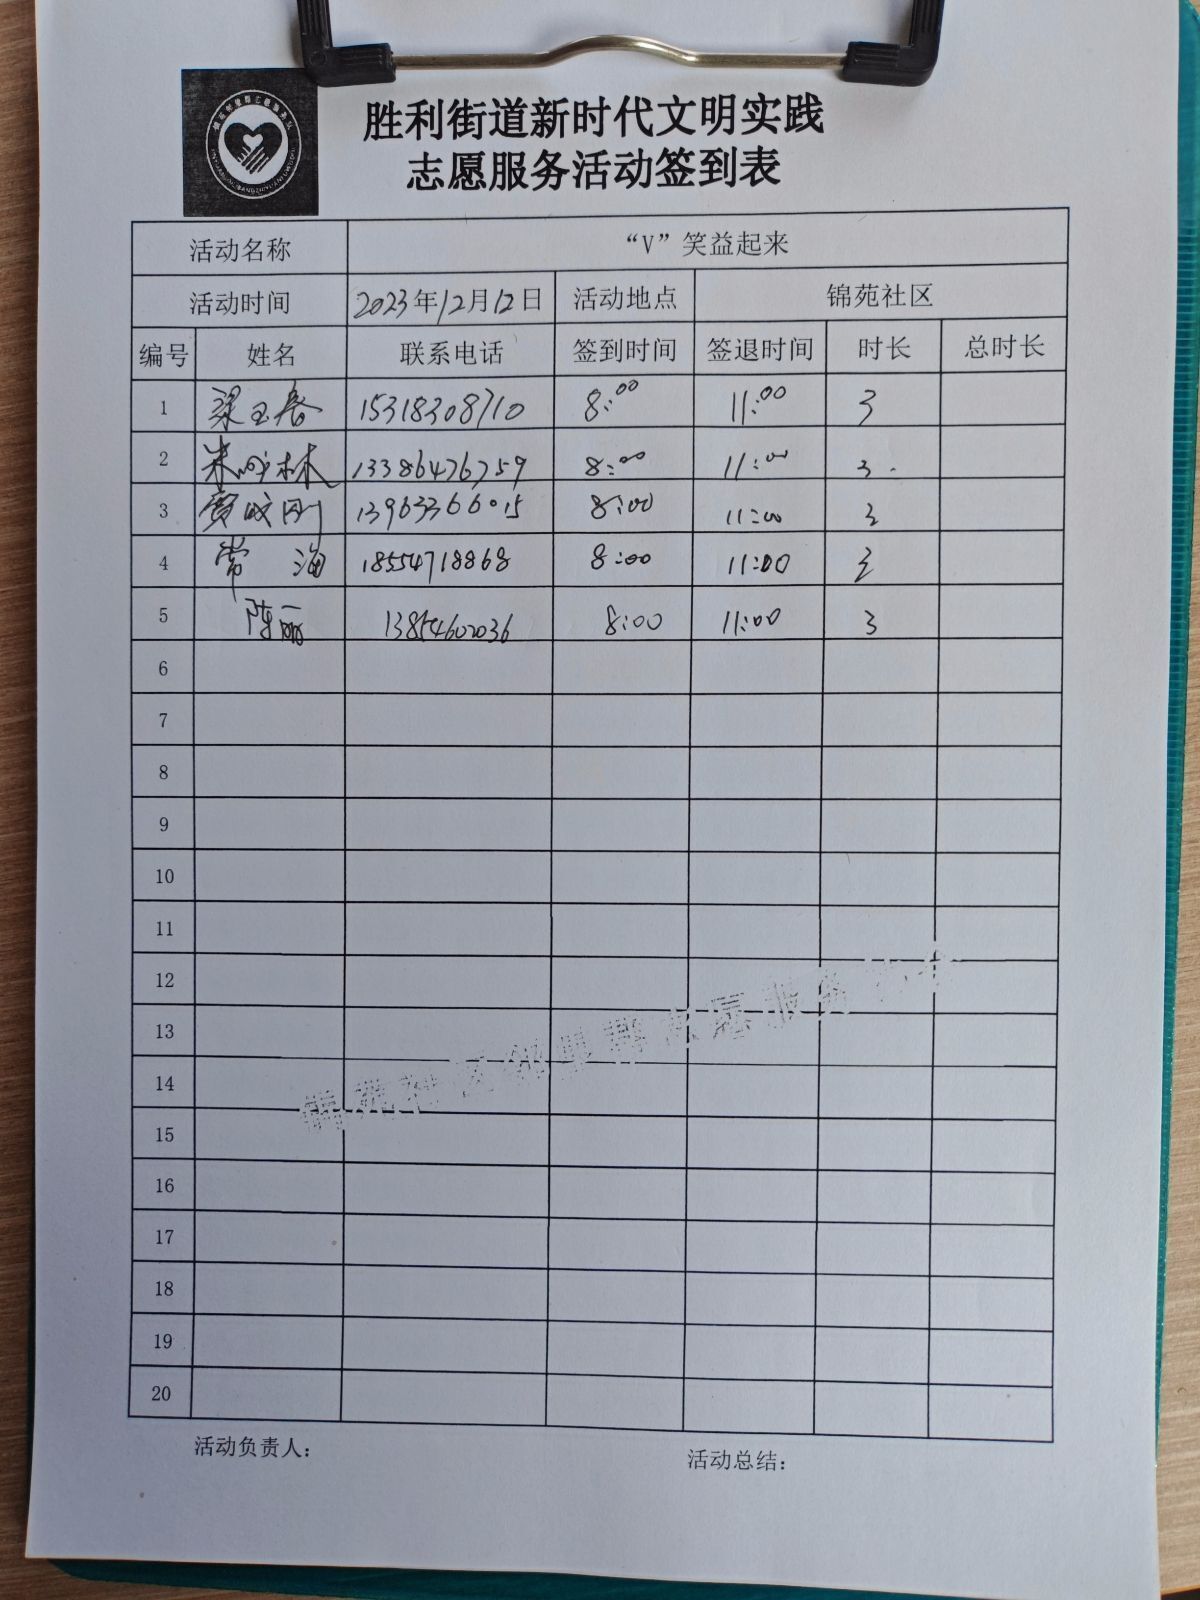 胜利街道新时代文明实践
志愿服务活动签到表
活动名称 “V”笑益起来
活动时间 2023年12月12日 活动地点 锦苑社区
编号 姓名 联系电话 签到时间 签退时间 时长 总时长
1 梁玉春 15318308710 8:00 11:00 3
2 米 林 13386476759 8:00 11:00 3
3 贾 刚 13963366015 8:00 11:00 3
4 常海 18554718868 8:00 11:00 3
5 陈丽 13854602036 8:00 11:00 3
6
7
8
9
10
11
12
13
14
15
16
17
18
19
20
活动负责人：
活动总结：